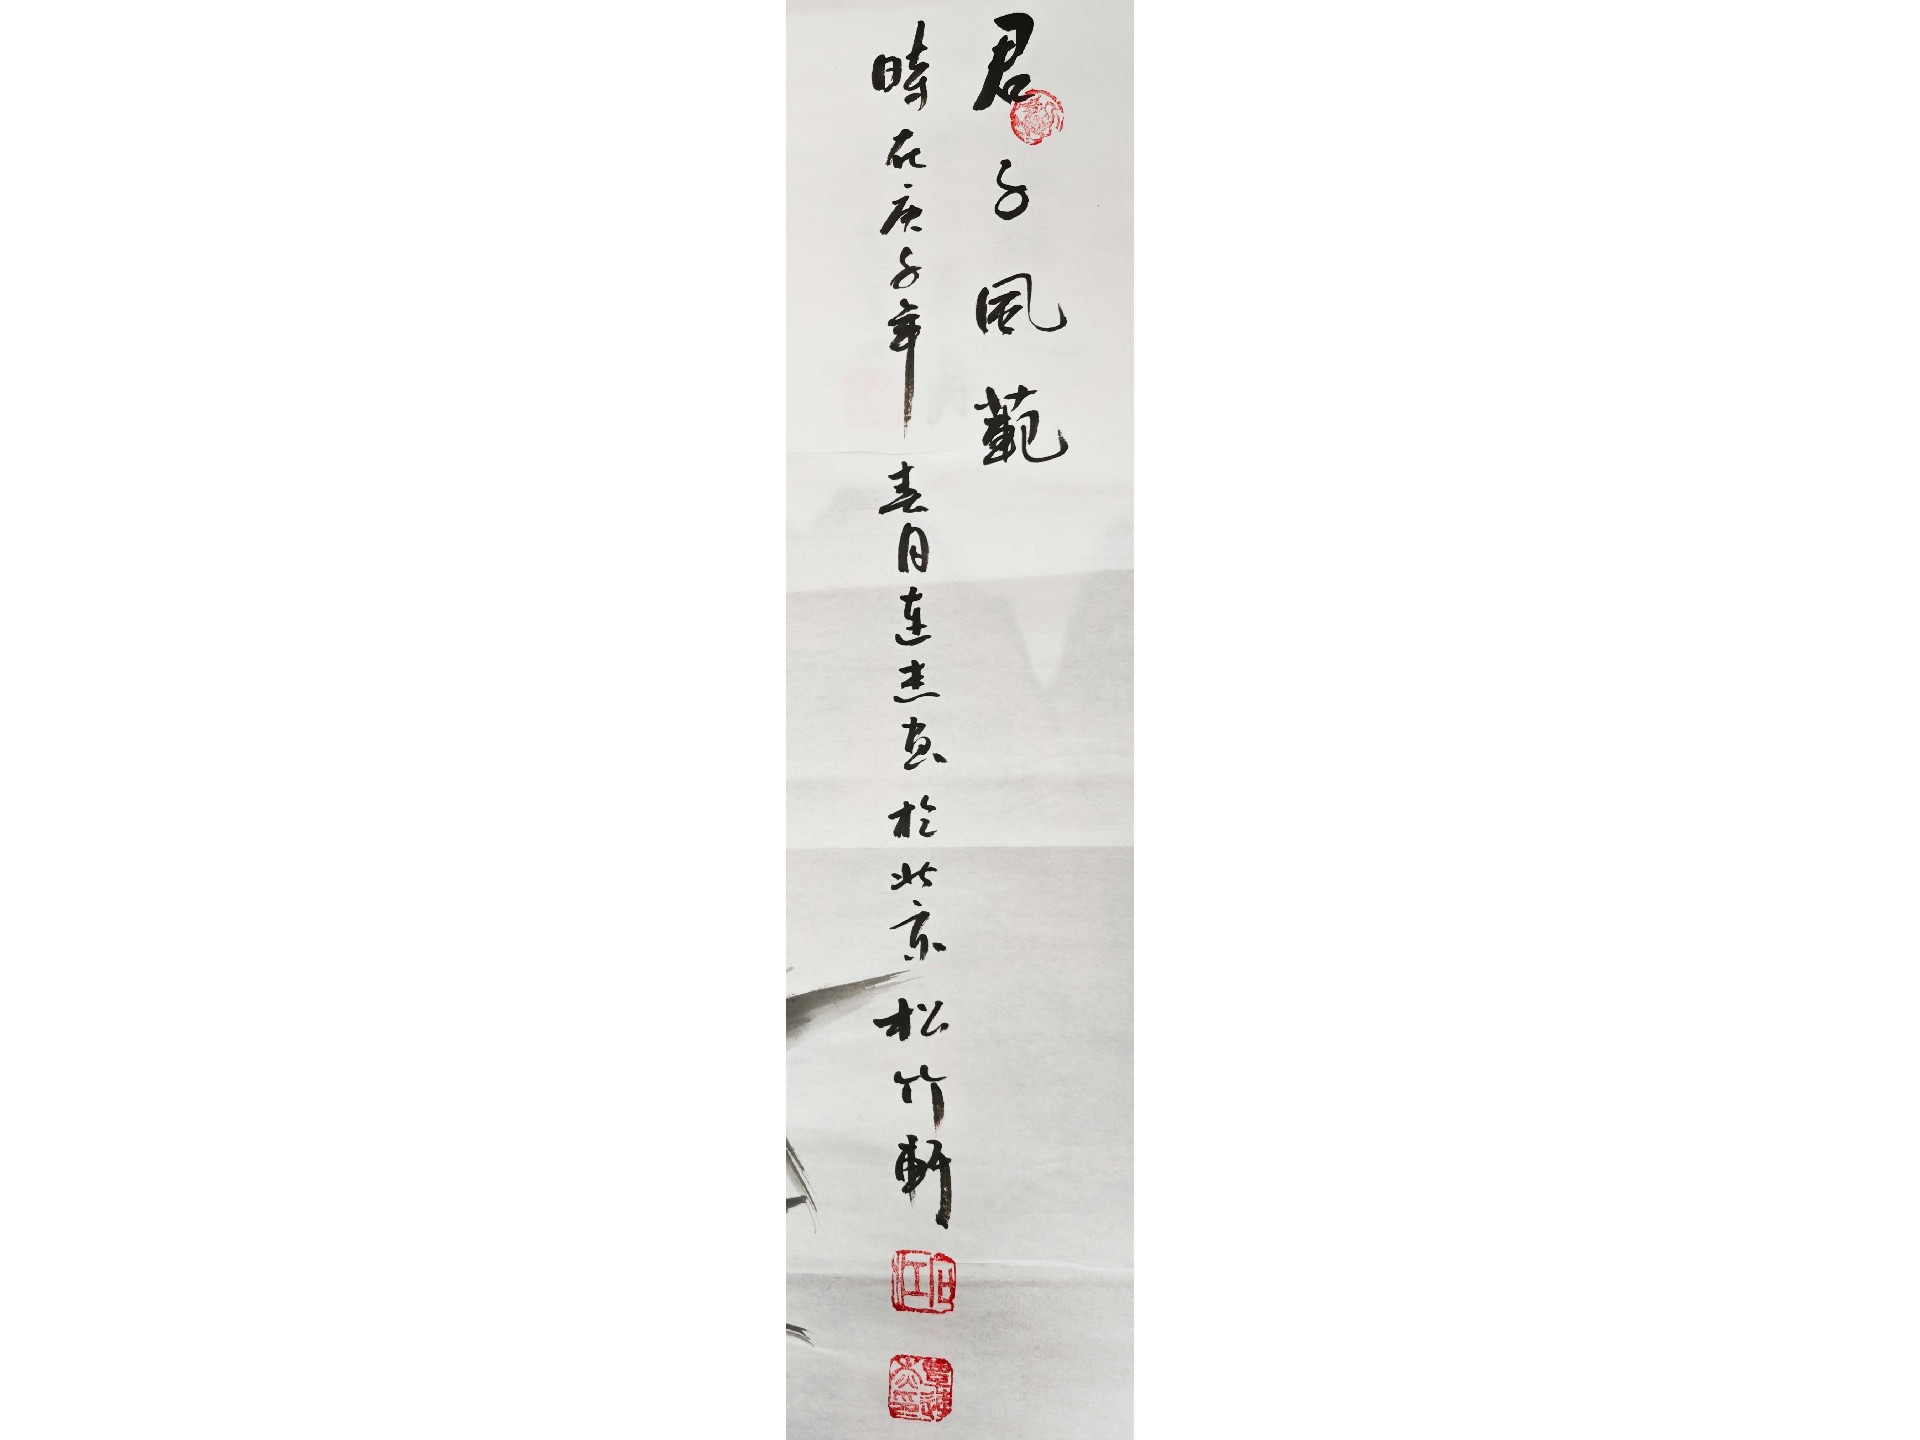 君子風範
時在庚子年春月連杰畫於北京松竹軒